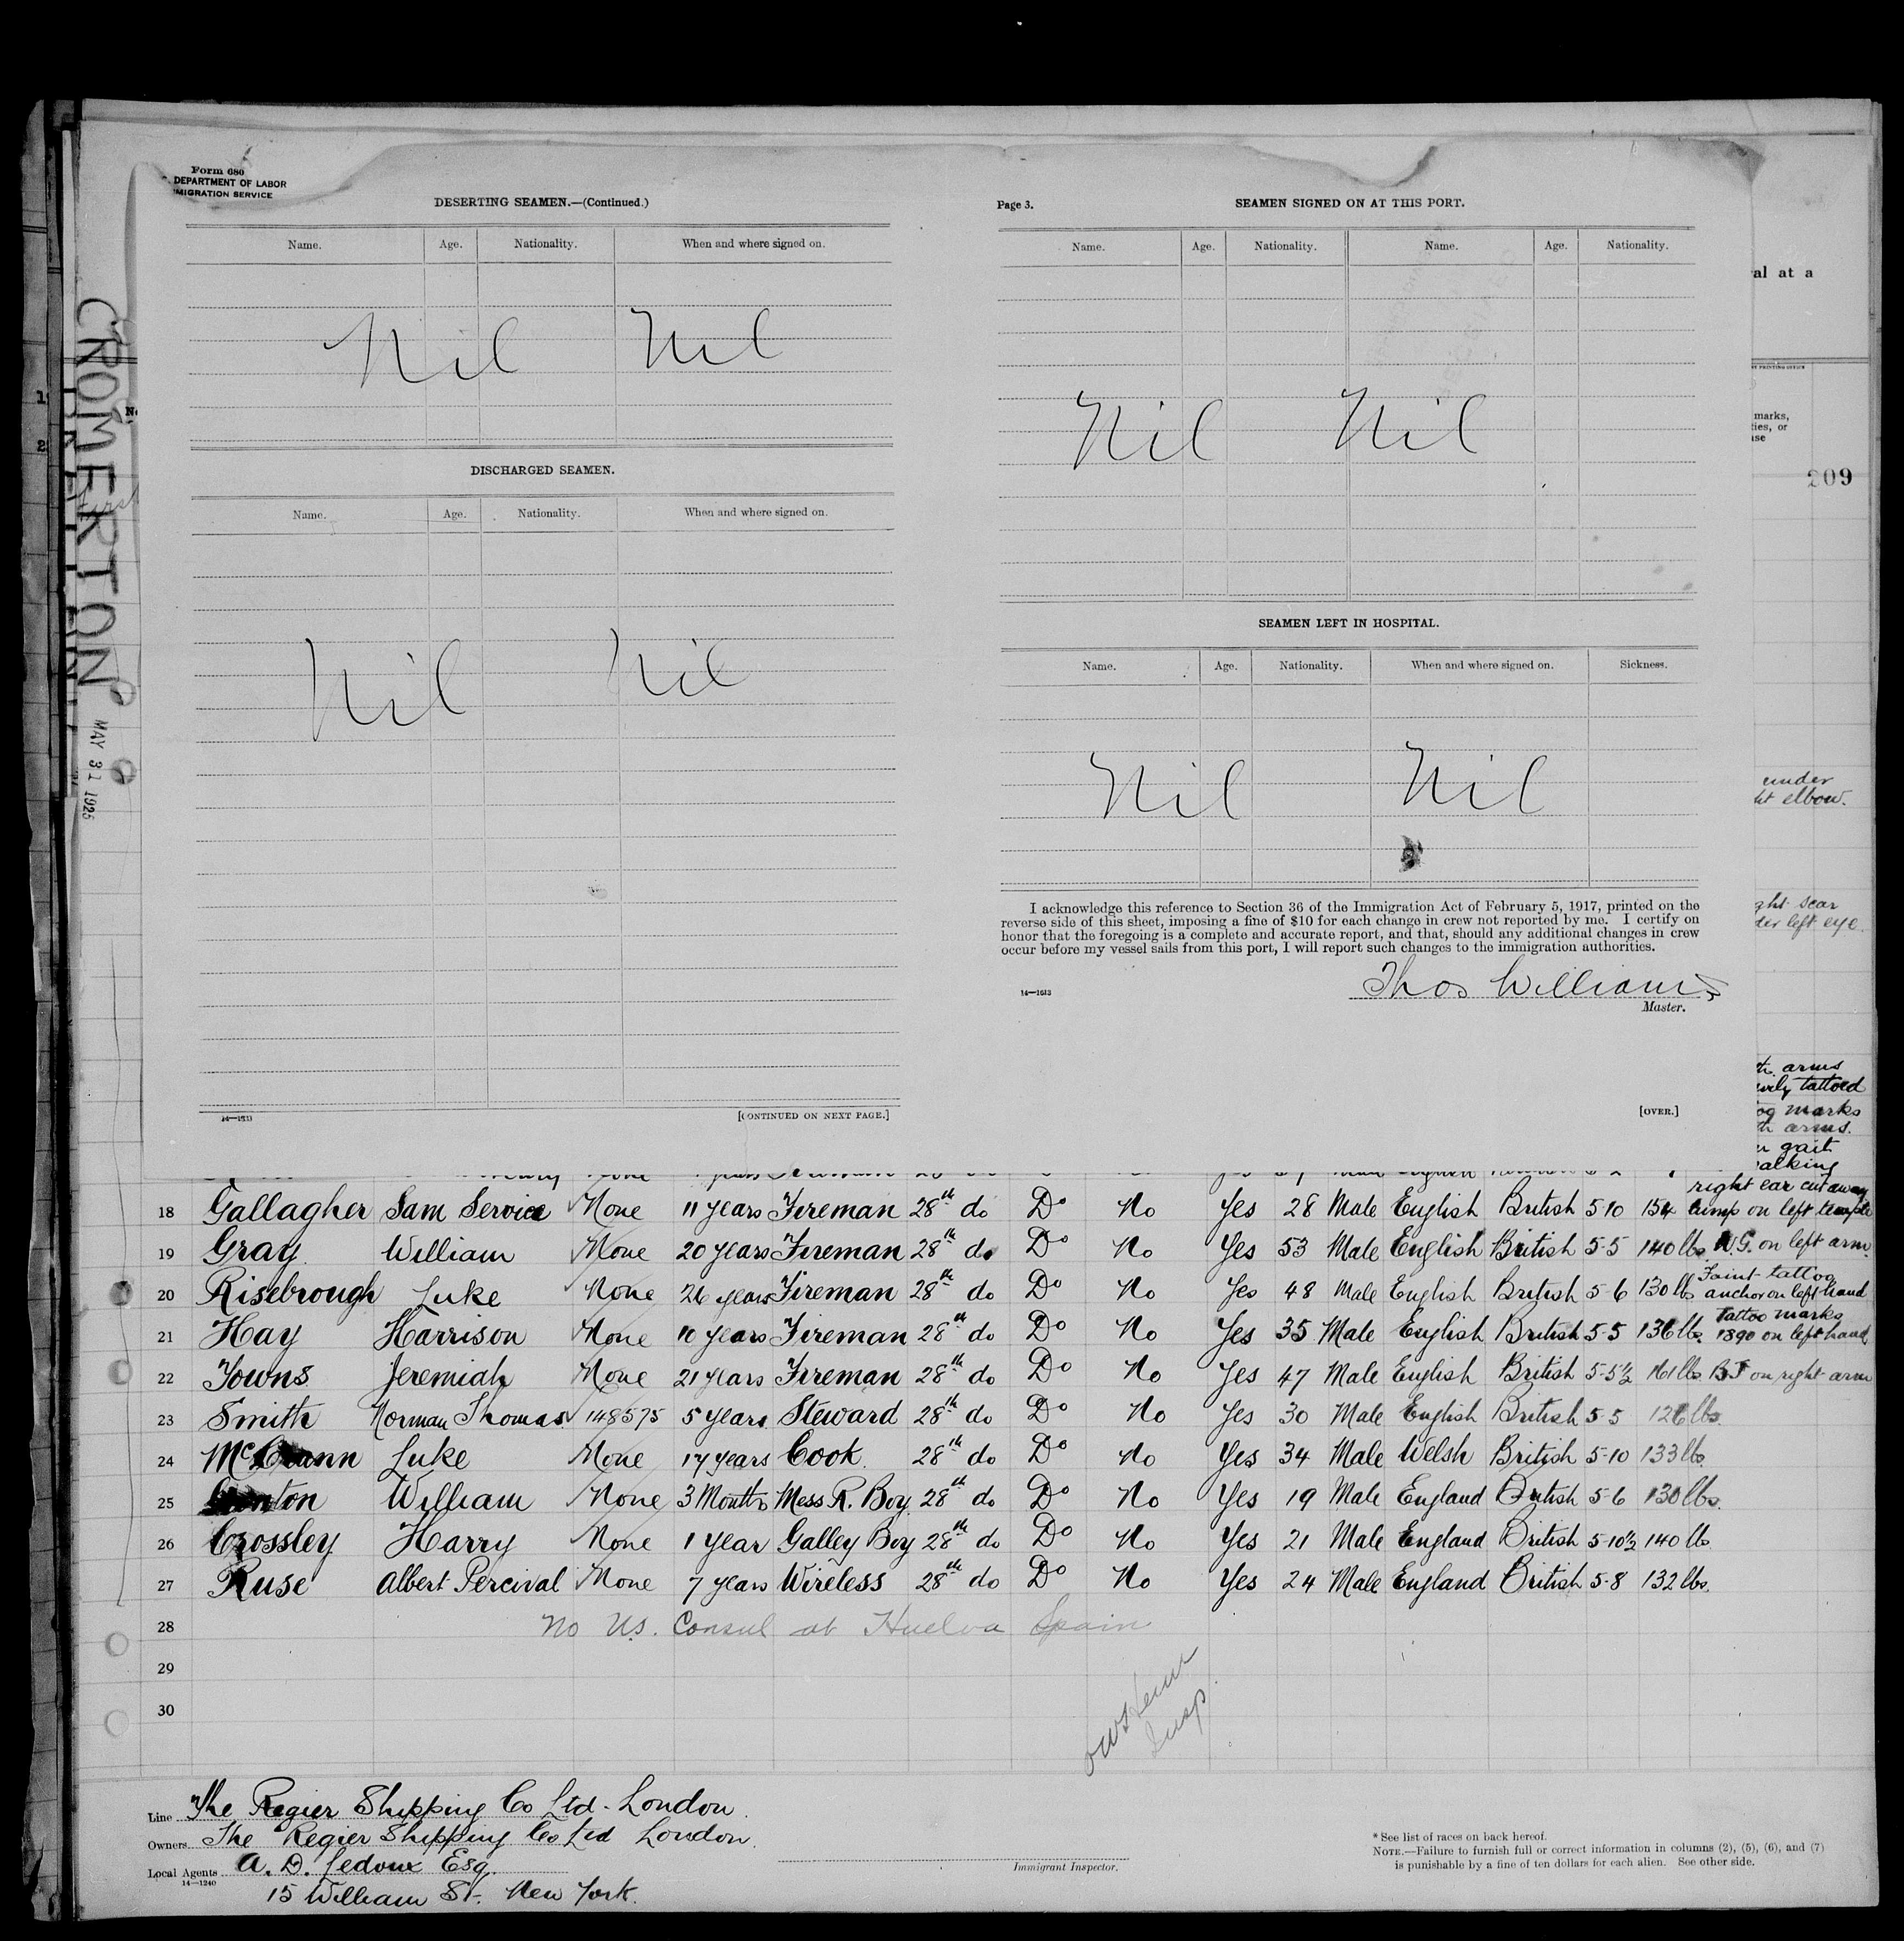 Form 686
DEPARTMENT OF LABOR
IMMIGRATION SERVICE
DESERTING SEAMEN.—(Continued.)
Name. Age. Nationality. When and where signed on.
Nil Nil
DISCHARGED SEAMEN.
Name. Age. Nationality. When and where signed on.
Nil Nil
14—1613
[CONTINUED ON NEXT PAGE.]
Page 3.
SEAMEN SIGNED ON AT THIS PORT.
Name. Age. Nationality. Name. Age. Nationality.
Nil Nil
SEAMEN LEFT IN HOSPITAL.
Name. Age. Nationality. When and where signed on. Sickness.
Nil Nil
I acknowledge this reference to Section 36 of the Immigration Act of February 5, 1917, printed on the
reverse side of this sheet, imposing a fine of $10 for each change in crew not reported by me. I certify on
honor that the foregoing is a complete and accurate report, and that, should any additional changes in crew
occur before my vessel sails from this port, I will report such changes to the immigration authorities.
14—1613
Thos Williams
Master.
[OVER.]
CROMERTON
MAY 31 1925
al at a
marks,
ties, or
209
under
ht elbow.
ght scar
der left eye.
arms
tattoed
marks
arms.
gait
walking
18 Gallagher Sam Service None 11 years Fireman 28th do Do No Yes 28 Male English British 5-10 154 right ear cut away lump on left temple
19 Gray William None 20 years Fireman 28th do Do No Yes 53 Male English British 5-5 140 lbs W.G. on left arm.
20 Risebrough Luke None 26 years Fireman 28th do Do No Yes 48 Male English British 5-6 130 lbs Faint tattoo anchor on left hand
21 Hay Harrison None 10 years Fireman 28th do Do No Yes 35 Male English British 5-5 136 lbs. Tattoo marks 1890 on left hand
22 Towns Jeremiah None 21 years Fireman 28th do Do No Yes 47 Male English British 5-5½ 161 lbs on right arm
23 Smith Norman Thomas 148575 5 years Steward 28th do Do No Yes 30 Male English British 5-5 126 lbs.
24 Luke None 17 years Cook. 28th do Do No Yes 34 Male Welsh British 5-10 133 lbs.
25 William None 3 Months Mess R. Boy 28th do Do No Yes 19 Male England British 5-6 130 lbs.
26 Crossley Harry None 1 Year Galley Boy 28th do Do No Yes 21 Male England British 5-10½ 140 lbs
27 Ruse Albert Percival None 7 years Wireless 28th do Do No Yes 24 Male England British 5-8 132 lbs.
28 No U.S. Consul at Huelva Spain
29
30
Insp.
Line The Regier Shipping Co Ltd - London.
Owners The Regier Shipping Co Ltd London.
Local Agents A. D. Ledoux Esq.
14—1240
15 William St. New York.
Immigrant Inspector.
* See list of races on back hereof.
NOTE.—Failure to furnish full or correct information in columns (2), (5), (6), and (7)
is punishable by a fine of ten dollars for each alien. See other side.